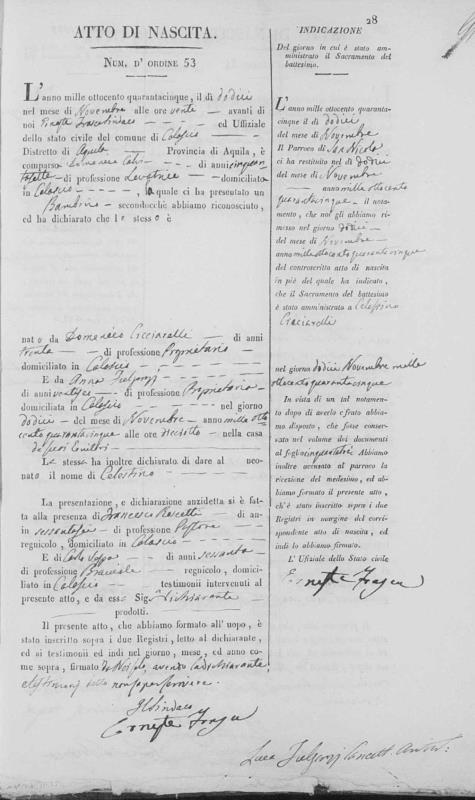 28
ATTO DI NASCITA.
NUM. D' ORDINE 53
L'anno mille ottocento quarantacinque, il dì dodici
nel mese di Novembre alle ore venti avanti di
noi Ernesto Sindaco ed Uffiziale
dello stato civile del comune di Colosio
Distretto di Aquila Provincia di Aquila, è
comparsa di anni cinquan
tasette di professione Levatrice domiciliata
in Colosio, la quale ci ha presentato un
Bambino secondocchè abbiamo riconosciuto,
ed ha dichiarato che lo stesso è
nato da Domenico Cicciarelli di anni
trenta di professione Proprietario
domiciliato in Colosio
E da Anna di anni ventisei di professione Proprietaria
domiciliata in Colosio nel giorno
dodici del mese di Novembre anno mille otto
cento quarantacinque alle ore dieciotto nella casa
de' suoi Genitori
La stessa ha inoltre dichiarato di dare al neo-
nato il nome di Celestino
La presentazione, e dichiarazione anzidetta si è fat-
ta alla presenza di Francesco di an-
ni sessantasei di professione Pastore
regnicolo, domiciliato in Colosio
E di Carlo di anni sessanta
di professione Bracciale regnicolo, domici-
liato in Colosio testimonii intervenuti al
presente atto, e da essa Sig.ª Dichiarante
prodotti.
Il presente atto, che abbiamo formato all'uopo, è
stato inscritto sopra i due Registri, letto al dichiarante,
ed ai testimonii ed indi nel giorno, mese, ed anno co-
me sopra, firmato da Noi solo, avendo la dichiarante
e testimonj detto non saper scrivere.
Il Sindaco
Ernesto
INDICAZIONE
Del giorno in cui è stato am-
ministrato il Sacramento del
battesimo.
L'anno mille ottocento quaranta-
cinque il dì dodici
del mese di Novembre
Il Parroco di San Nicola
ci ha restituito nel dì dodici
del mese di Novembre
anno mille ottocento
quarantacinque il nota-
mento, che noi gli abbiamo ri-
messo nel giorno dodici
del mese di Novembre
anno mille ottocento quarantacinque
del controscritto atto di nascita
in piè del quale ha indicato,
che il Sacramento del battesimo
è stato amministrato a Celestino
Cicciarelli
nel giorno dodici Novembre mille
ottocento quarantacinque
In vista di un tal notamen-
to dopo di averlo cifrato abbia-
mo disposto, che fosse conser-
vato nel volume dei documenti
al foglio cinquantatre Abbiamo
inoltre accusato al parroco la
ricezione del medesimo, ed ab-
biamo formato il presente atto,
ch'è stato inscritto sopra i due
Registri in margine del corri-
spondente atto di nascita, ed
indi lo abbiamo firmato.
L' Ufiziale dello Stato civile
Ernesto
Luca